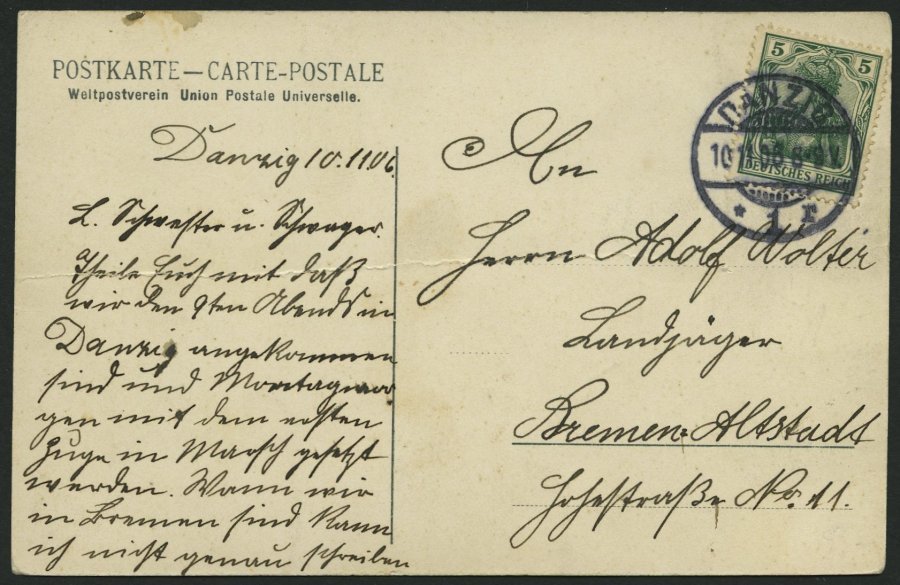 POSTKARTE — CARTE-POSTALE
Weltpostverein Union Postale Universelle.
Danzig 10.11.06.
L. Schwester u. Schwager.
Theile Euch mit daß
wir den 9ten Abends in
Danzig angekommen
sind und Montagmor
gen mit dem ersten
Zuge in Marsch gesetzt
werden. Wann wir
in Bremen sind kann
ich nicht genau schreiben
5 5
DEUTSCHES REICH
DANZIG
10.11.06 8-9 V.
* 1 r
An
Herrn Adolf Wolter
Landjäger
Bremen-Altstadt
Hohestraße No. 11.